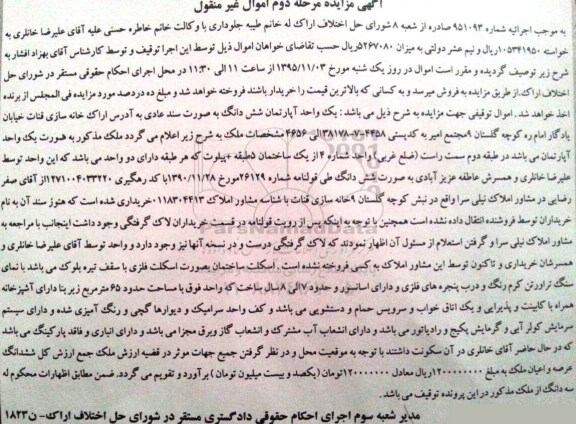 آگهی مزایده مرحله دوم اموال غیر منقول
به موجب اجرائیه شماره ۹۵۱۰۹۳ صادره از شعبه ۸ شورای حل اختلاف اراک له خانم طیبه جلوداری با وکالت خانم خاطره حسنی علیه آقای علیرضا خانلری به
خواسته ۱۰۵۳۴۱۹۵۰ ریال و نیم عشر دولتی به میزان ۵۲۶۷۰۸۰ ریال حسب تقاضای خواهان اموال ذیل توسط این اجرا توقیف و توسط کارشناس آقای بهزاد افشار به
شرح زیر توصیف گردیده و مقرر است اموال در روز یک شنبه مورخ ۱۳۹۵/۱۱/۰۳ از ساعت ۱۱ الی ۱۱:۳۰ در محل اجرای احکام حقوقی مستقر در شورای حل
اختلاف اراک.از طریق مزایده به فروش میرسد و به کسانی که بالاترین قیمت را خریدار باشند فروخته خواهد شد و مبلغ ده درصد مورد مزایده فی المجلس از برنده
اخذ خواهد شد . اموال توقیفی جهت مزایده به شرح ذیل می باشد : یک واحد آپارتمان شش دانگ به صورت سند عادی به آدرس اراک خانه سازی قنات خیابان
یادگار امام ره کوچه گلستان ۹ مجتمع امیر به کدپستی ۴۴۵۸-۷-۳۸۱۷۸ الی ۴۶۵۶ مشخصات ملک به شرح زیر اعلام می گردد ملک مذکور به صورت یک واحد
آپارتمان می باشد در طبقه دوم سمت راست (ضلع غربی) واحد شماره ۴ از یک ساختمان ۵ طبقه +پیلوت که هر طبقه دارای دو واحد می باشد که این واحد توسط
علیرضا خانلری و همسرش عاطفه عزیز آبادی به صورت شش دانگ طی قولنامه شماره ۲۶۱۲۹ مورخ ۱۳۹۰/۱۱/۲۸ با کد رهگیری ۱۲۷۱۰۰۴۰۳۳۲۲۰ از آقای صفر
رضایی در مشاور املاک نیلی سرا واقع در نبش کوچه گلستان ۹ خانه سازی قنات با شناسه مشاور املاک ۱۱۸۳۰۴۴۱۳ خریداری شده است که هنوز سند آن به نام
خریداران توسط فروشنده انتقال داده نشده است همچنین با توجه به اینکه پس از رویت قولنامه در قسمت خریداران لاک گرفتگی وجود داشت اینجانب با مراجعه به
مشاور املاک نیلی سرا و گرفتن استعلام از مسئول آن اظهار نمودند که لاک گرفتگی درست و در نسخه آنها نیز وجود دارد و واحد توسط آقای علیرضا خانلری و
همسرشان خریداری و تاکنون توسط این مشاور املاک به کسی فروخته نشده است . اسکلت ساختمان بصورت اسکلت فلزی با سقف تیره بلوک می باشد با نمای
سنگ تراورتن کرم رنگ و درب پنجره های فلزی و دارای اسانسور و حدود ۷ الی ۸ سال ساخت که واحد فوق با مساحت حدود ۶۵ مترمربع زیر بنا دارای آشپزخانه
همراه با کابینت و پذیرایی و یک اتاق خواب و سرویس حمام و دستشویی می باشد و کف واحد سرامیک و دیوارها گچی و رنگ آمیزی شده و دارای سیستم
سرمایش کولر آبی و گرمایش پکیج و رادیاتور می باشد و دارای انشعاب آب مشترک و انشعاب گاز وبرق مجزا می باشد و دارای انباری و فاقد پارکینگ می باشد
که در حال حاضر آقای خانلری در آن سکونت داشتند با توجه به موقعیت محل و در نظر گرفتن جمیع جهات موثر در قضیه ارزش ملک جمع ارزش کل ششدانگ
عرصه و اعیان ملک به مبلغ ۱۲۰۰۰۰۰۰۰۰ ریال معادل ۱۲۰۰۰۰۰۰۰ تومان (یکصد و بیست میلیون تومان ) برآورد و تقویم می گردد. ضمن مطابق اظهارات محکوم له
سه دانگ از ملک مذکور در این پرونده توقیف می باشد .
مدیر شعبه سوم اجرای احکام حقوقی دادگستری مستقر در شورای حل اختلاف اراک- ن۱۸۲۳